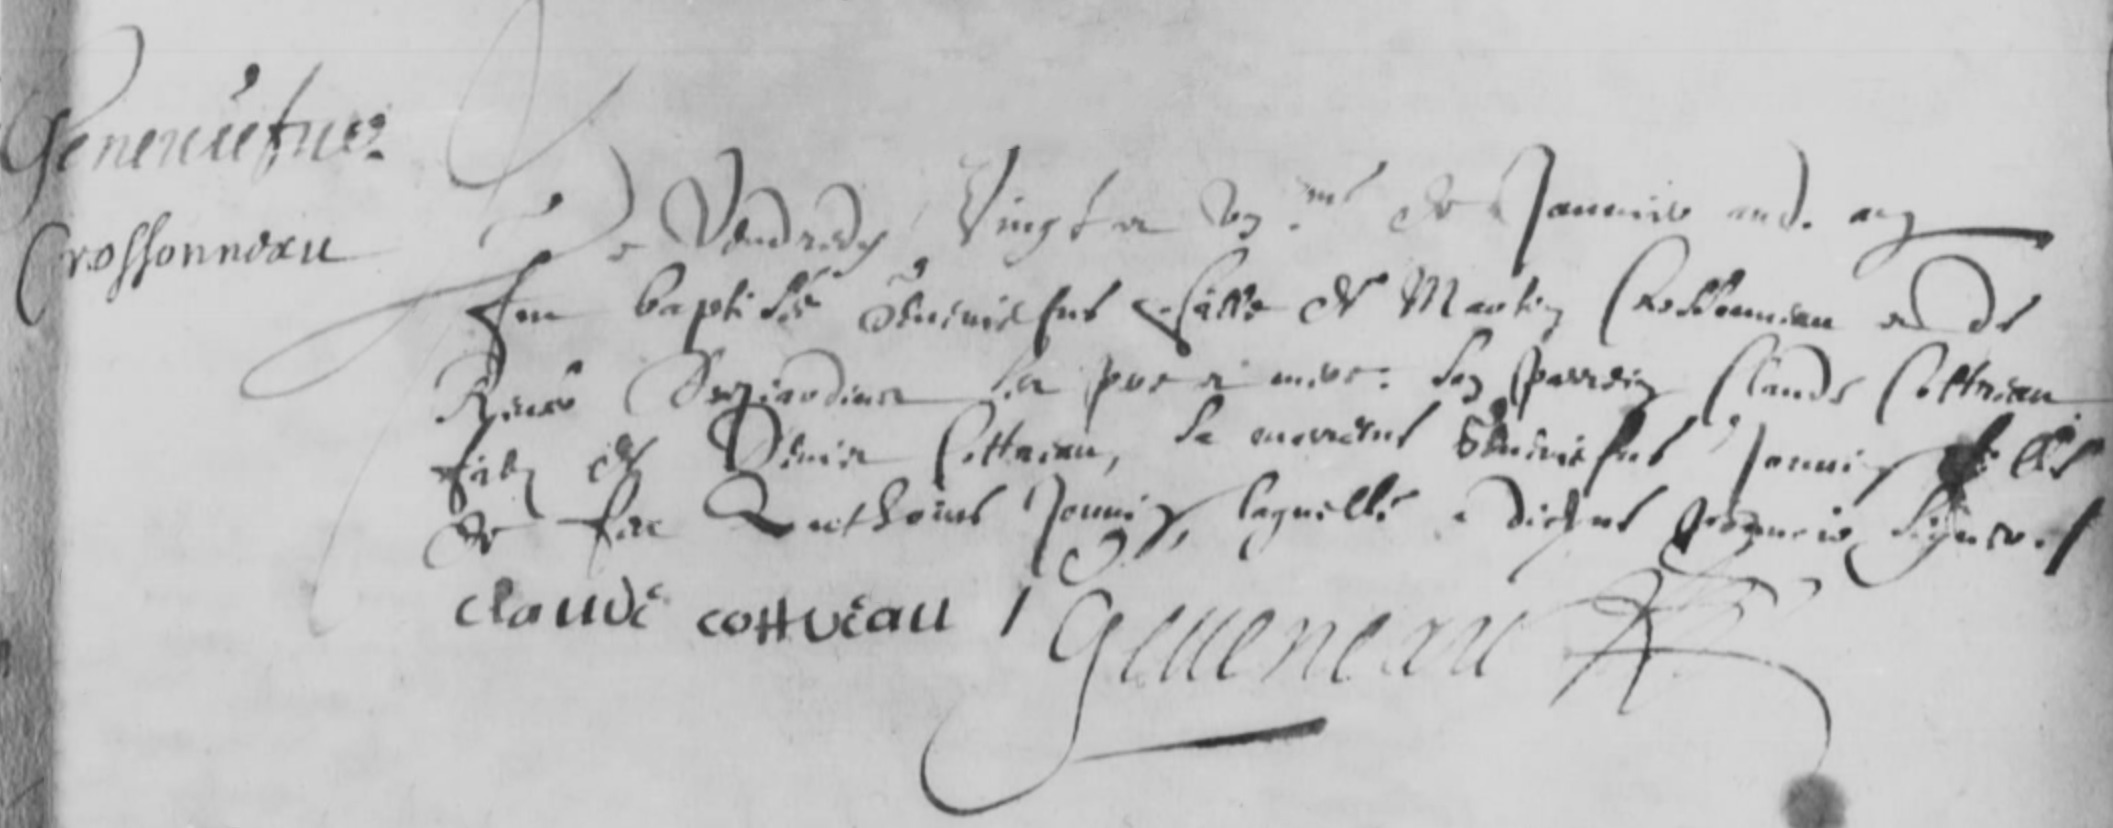 Genevietue
Crossonneau
Le Vendredy Vingt et un.me de Janvier aud. an
fut baptisée Geneviefve fille de Martin Crossonneau et de
Desjardins ses pere et mere. Son parrein Claude Cottereau
filz de Denis Cottereau, la marrene Geneviefve Jannis fille
de feu Anthoine Jannis, laquelle a dict ne scavoir signer./
claude cottreau / Gueneau